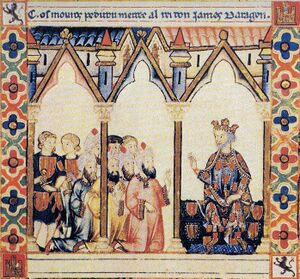 C. os mouros pediron merce al rei don James Daragon.